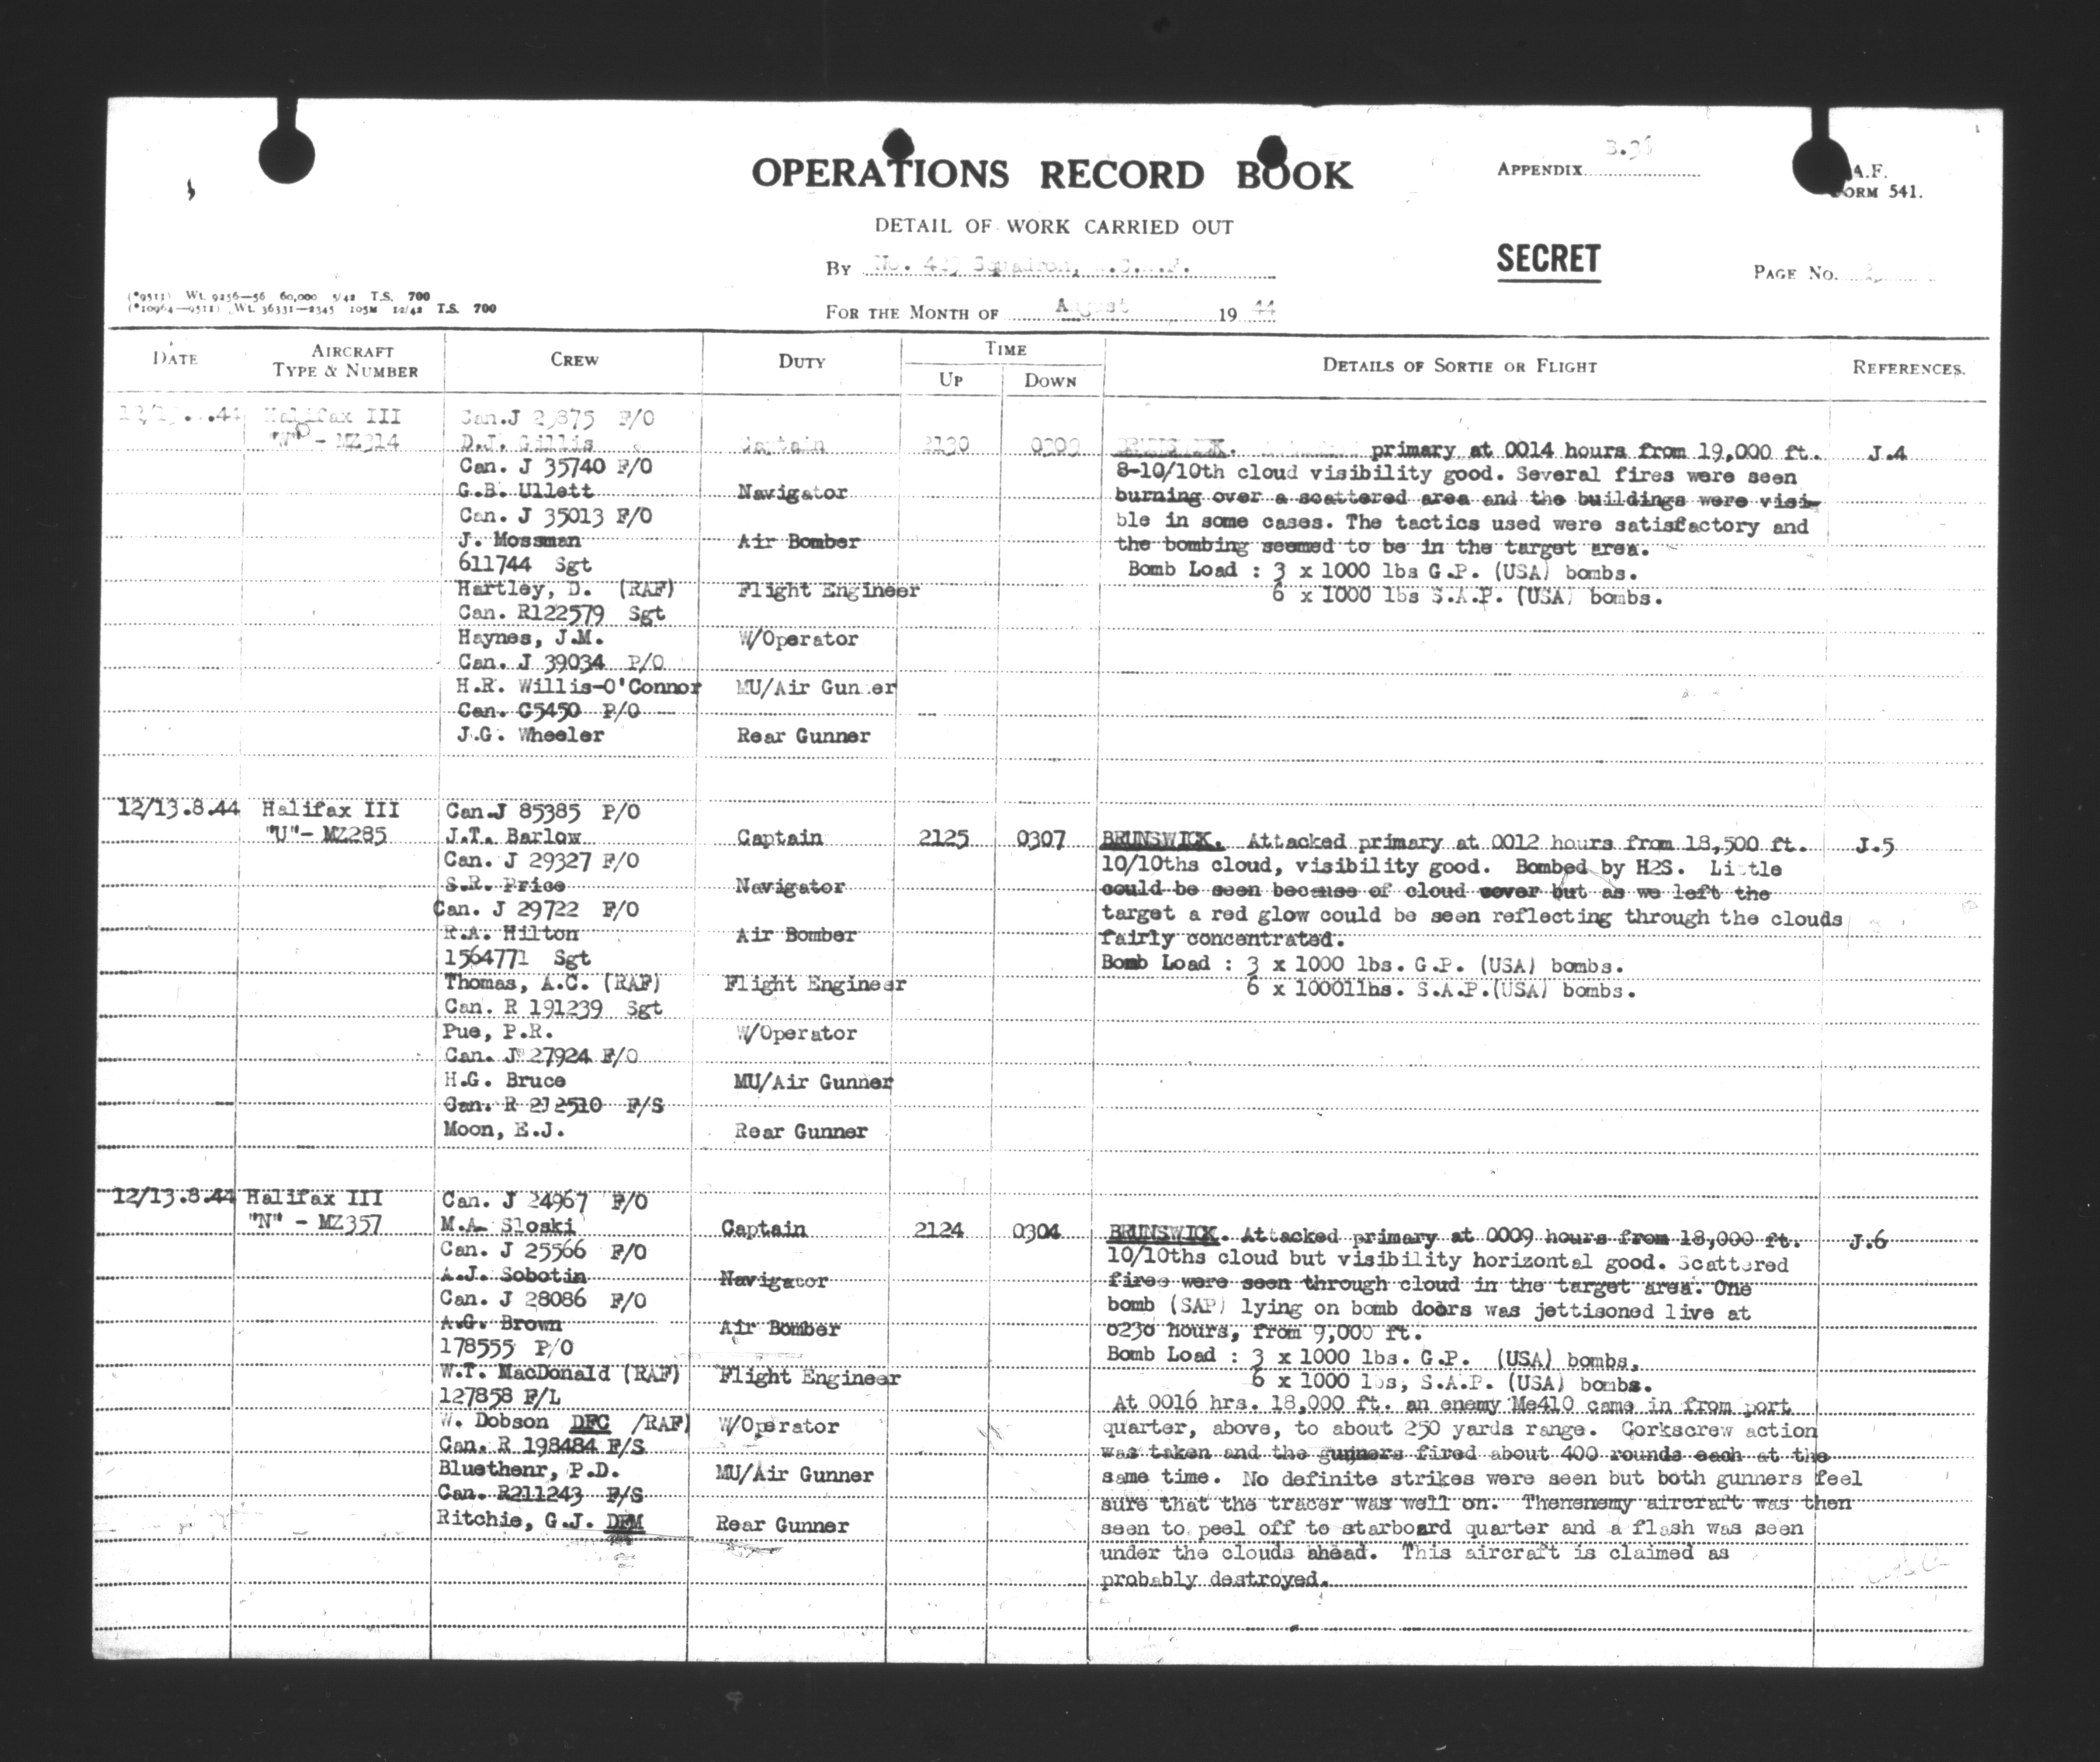 OPERATIONS RECORD BOOK
APPENDIX
A.F.
FORM 541.
DETAIL OF WORK CARRIED OUT
SECRET
BY No. Squadron,
PAGE No.
(*9511) Wt. 9256—56 60,000 5/42 T.S. 700
(*10964—9511) Wt. 36331—2345 105M 12/42 T.S. 700
FOR THE MONTH OF August 19 44
DATE
AIRCRAFT TYPE & NUMBER
CREW
DUTY
TIME
UP
DOWN
DETAILS OF SORTIE OR FLIGHT
REFERENCES.
Halifax III Can.J F/O
"W" - MZ314 D.J. Gillis Captain 2130 0309 BRUNSWICK. primary at 0014 hours from 19,000 ft. J.4
Can. J 35740 F/O 8-10/10th cloud visibility good. Several fires were seen
G.B. Ullett Navigator burning over a scattered area and the buildings were visi-
Can. J 35013 F/O ble in some cases. The tactics used were satisfactory and
J. Mossman Air Bomber the bombing seemed to be in the target area.
611744 Sgt Bomb Load : 3 x 1000 lbs G.P. (USA) bombs.
Hartley, D. (RAF) Flight Engineer 6 x 1000 lbs S.A.P. (USA) bombs.
Can. R122579 Sgt
Haynes, J.M. W/Operator
Can. J 39034 P/O
H.R. Willis-O'Connor MU/Air Gunner
Can. C5450 P/O
J.G. Wheeler Rear Gunner
12/13.8.44 Halifax III Can.J 85385 P/O
"U"- MZ285 J.T. Barlow Captain 2125 0307 BRUNSWICK. Attacked primary at 0012 hours from 18,500 ft. J.5
Can. J 29327 F/O 10/10ths cloud, visibility good. Bombed by H2S. Little
S.R. Price Navigator could be seen because of cloud cover but as we left the
Can. J 29722 F/O target a red glow could be seen reflecting through the clouds
R.A. Hilton Air Bomber fairly concentrated.
1564771 Sgt Bomb Load : 3 x 1000 lbs. G.P. (USA) bombs.
Thomas, A.C. (RAF) Flight Engineer 6 x 10001lhs. S.A.P.(USA) bombs.
Can. R 191239 Sgt
Pue, P.R. W/Operator
Can. J 27924 F/O
H.G. Bruce MU/Air Gunner
Can. R 212510 F/S
Moon, E.J. Rear Gunner
12/13.8.44 Halifax III Can. J 24967 F/O
"N" - MZ357 M.A. Sloski Captain 2124 0304 BRUNSWICK. Attacked primary at 0009 hours from 18,000 ft. J.6
Can. J 25566 F/O 10/10ths cloud but visibility horizontal good. Scattered
A.J. Sobotin Navigator fires were seen through cloud in the target area. One
Can. J 28086 F/O bomb (SAP) lying on bomb doors was jettisoned live at
A.G. Brown Air Bomber 0230 hours, from 9,000 ft.
178555 P/O Bomb Load : 3 x 1000 lbs. G.P. (USA) bombs.
W.T. MacDonald (RAF) Flight Engineer 6 x 1000 lbs, S.A.P. (USA) bombs.
127858 F/L At 0016 hrs. 18,000 ft. an enemy Me410 came in from port
W. Dobson DFC /RAF) W/Operator quarter, above, to about 250 yards range. Corkscrew action
Can. R 198484 F/S was taken and the gunners fired about 400 rounds each at the
Bluethenr, P.D. MU/Air Gunner same time. No definite strikes were seen but both gunners feel
Can. R211243 F/S sure that the tracer was well on. Thenenemy aircraft was then
Ritchie, G.J. DFM Rear Gunner seen to peel off to starboard quarter and a flash was seen
under the clouds ahead. This aircraft is claimed as
probably destroyed.